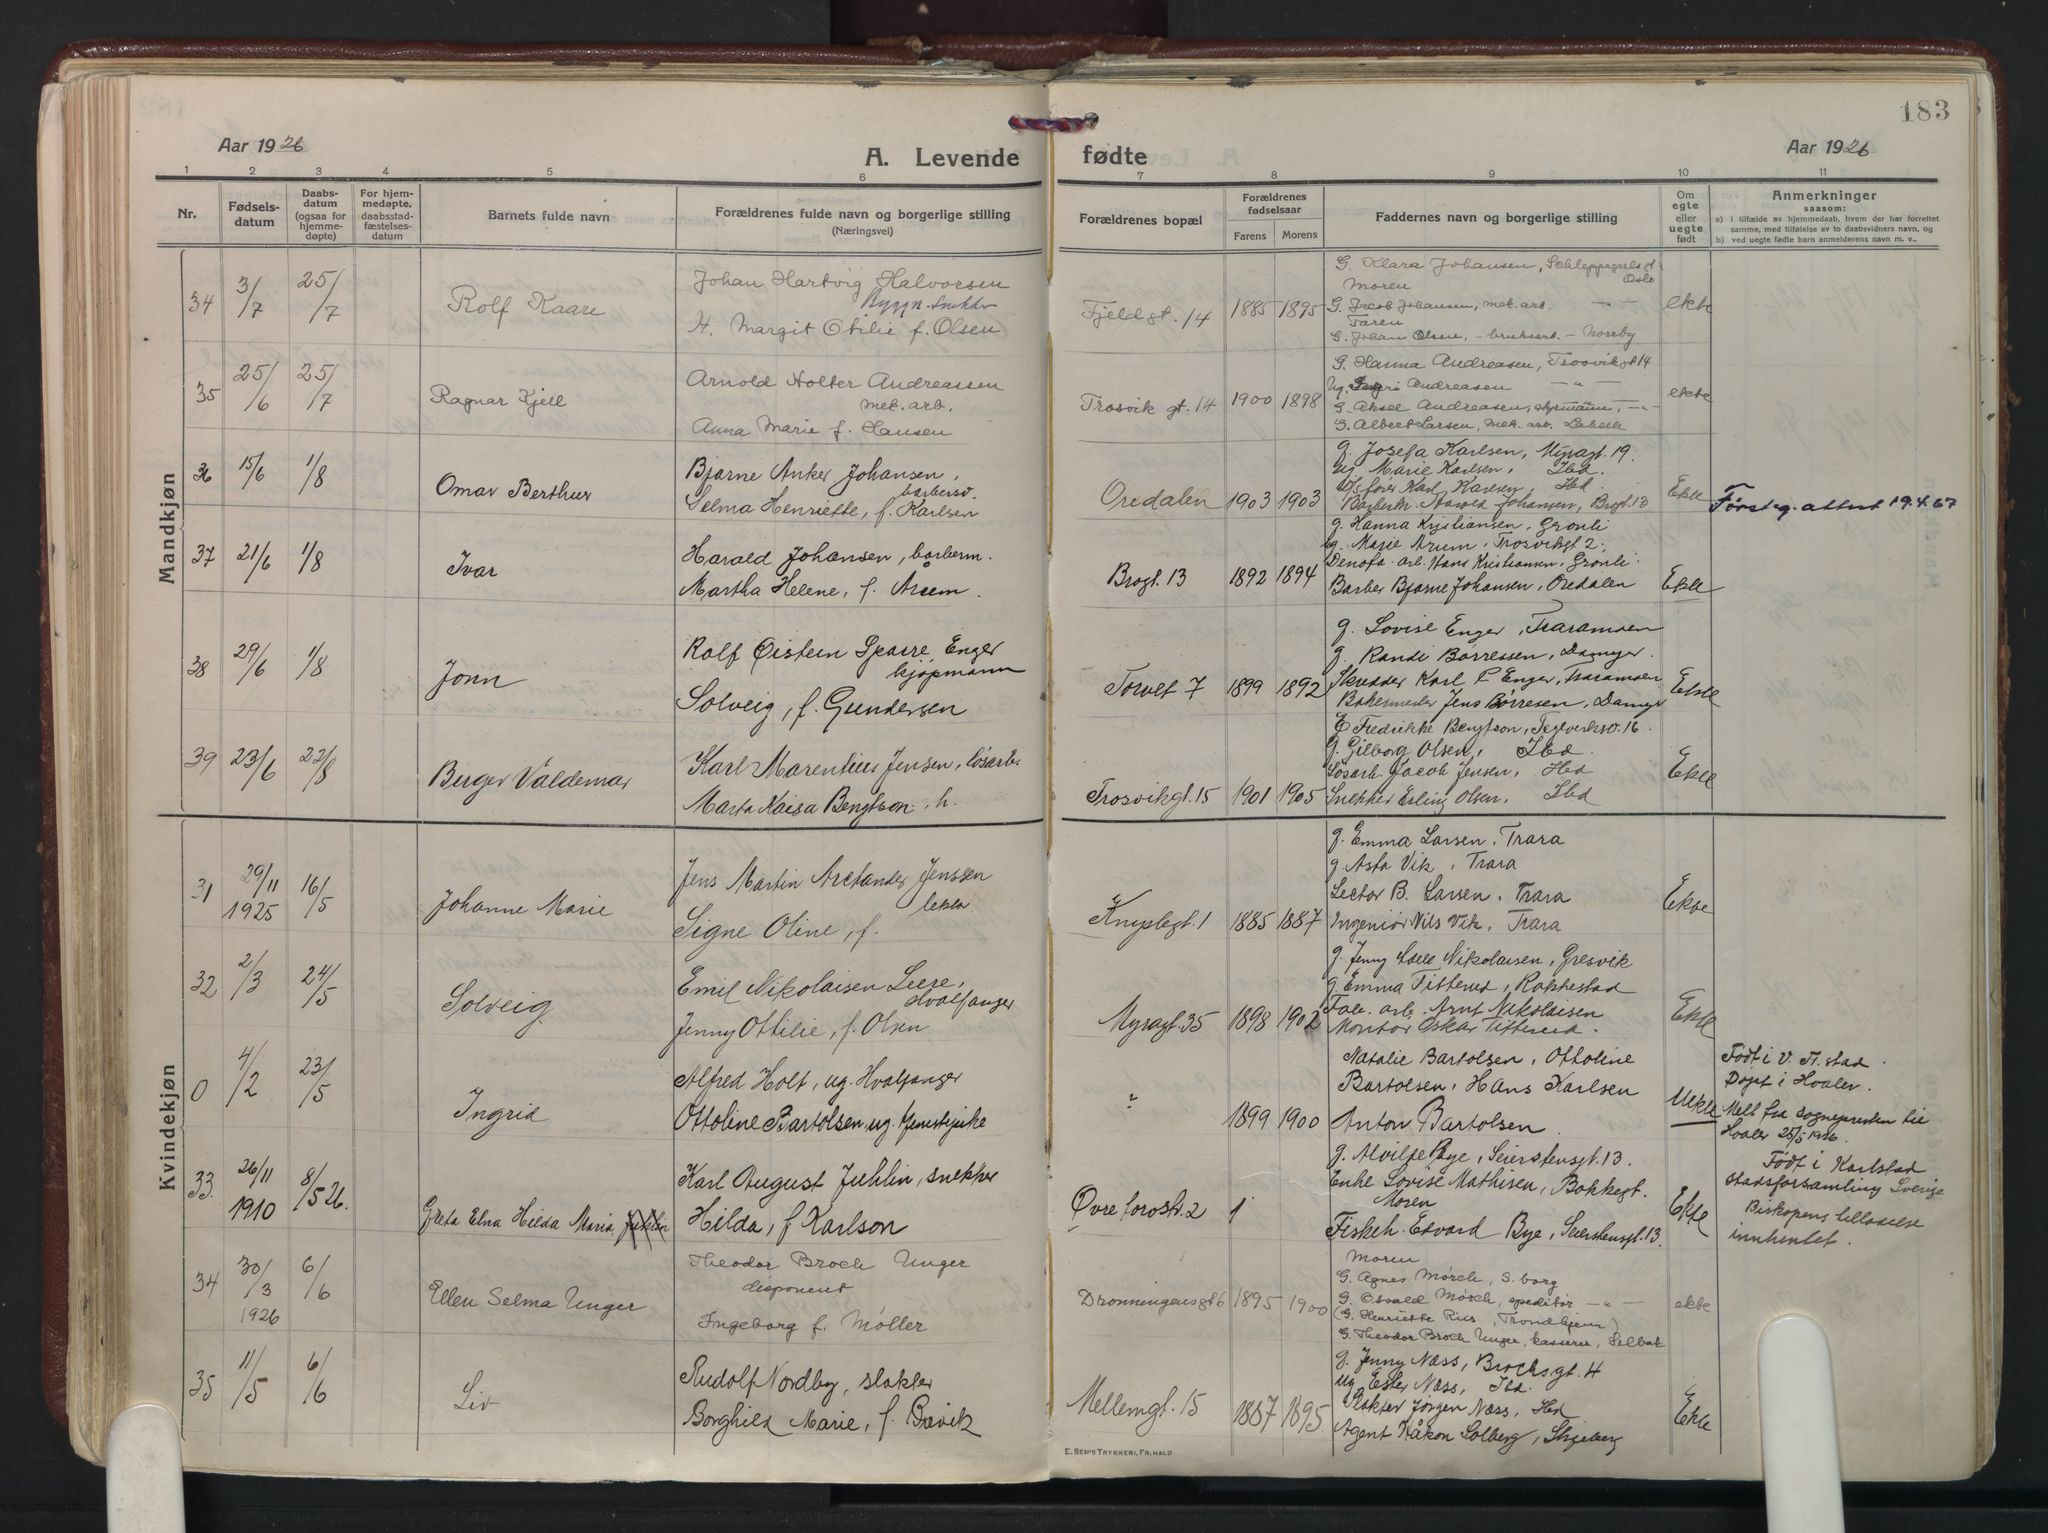 183
Aar 1926
A. Levende fødte
Aar 1926
1 2 3 4 5 6 7 8 9 10 11
Nr.
Fødselsdatum
Daabsdatum (ogsaa for hjemmedøpte)
For hjemmedøpte, daabsstadfæstelsesdatum
Barnets fulde navn
Forældrenes fulde navn og borgerlige stilling
(Næringsvei)
Forældrenes bopæl
Forældrenes fødselsaar
Farens Morens
Faddernes navn og borgerlige stilling
Om egte eller uegte født
Anmerkninger
saasom:
a) i tilfælde av hjemmedaab, hvem der har forrettet
samme, med tilføielse av to daabsvidners navn, og
b) ved uegte fødte barn anmelderens navn m. v..
Mandkjøn
34 3/7 25/7 Rolf Kaare
Johan Hartvig Halvorsen
H. Margit Otilie f. Olsen
Fjeldgt. 14 1885 1895
G. Klara Johansen, Schleppegrelsgt.
Oslo
Moren
G. Jacob Johansen, mek. arb. — " —
Faren
G. Johan Olsen, - bruksarb. - Moseby
ekte
35 25/6 25/7 Ragnar Kjell
Arnold Holter Andreassen
mek. arb.
Anna Marie f. Hansen
Trosvikgt. 14 1900 1898
G. Hanna Andreasen, Trosvikgt 14
Ug. Andreasen — " —
G. Aksel Andreasen, styrmann, — " —
G. Albert Larsen, mek. arb.
ekte
36 15/6 1/8 Omar Berthur
Bjarne Anker Johansen,
barbersv.
Selma Henriette, f. Karlsen
Oredalen 1903 1903
g. Josefa Karlsen, Myragt. 19.
ug. Marie Karlsen, Ibd.
Karl Karlsen, Ibd.
Barberm. Harald Johansen, Brogt. 13
Ekte
Førsteg. attest 19.4.67
37 21/6 1/8 Ivar
Harald Johansen, barberm.
Martha Helene, f. Årum.
Brogt. 13 1892 1894
g. Hanna Kristiansen, Grønli
ug. Marie Arum, Trosvikgt 2.
Denofa. arb. Hans Kristiansen, Grønli.
Barber Bjarne Johansen, Oredalen
Ekte
38 29/6 1/8 Jonn
Rolf Øistein Sparre Enger
kjøpmann
Solveig, f. Gundersen
Torvet 7 1899 1892
g. Lovise Enger, Traramoen
g. Randi Børressen, Damyr.
Skredder Karl Enger, Traramoen
Bakermester Jens Børresen, Damyr
Ekte
39 23/6 22/8 Birger Valdemar
Karl Marentius Jensen, løsarb.
Marta Kaisa Bengtson. h.
Trosvikgt. 15 1901 1905
E. Fredrikke Bengtson, Teglverksv. 16.
g. Gilborg Olsen, Ibd.
Løsarb. Jacob Jensen, Ibd
Snekker Erling Olsen, Ibd
Ekte
Kvindekjøn
31 29/11 1925 16/5 Johanne Marie
Jens Martin Arctander Jenssen
lektor
Signe Oline, f.
Kniplegt. 1 1885 1887
g. Emma Larsen, Trara
g. Asta Vik, Trara
Lector B. Larsen, Trara
Ingeniør Nils Vik, Trara
Ekte
32 2/3 24/5 Solveig
Emil Nikolaisen Leere,
Hvalfanger
Jenny Ottilie, f. Olsen
Myragt. 35 1898 1902
g. Jenny Nikolaisen, Gresvik
g. Emma Titterud, Rakkestad
Fab. arb. Arnt Nikolaisen
Montør Oskar Titterud.
Ekte
0 4/2 23/5 Ingrid
Alfred Holt, ug. Hvalfanger
Ottoline Bartolsen, ug. tjenestepike
? 1899 1900
Natalie Bartolsen, Ottoline
Bartolsen, Hans Karlsen
Anton Bartolsen.
Uekte
Født i V. Fr.stad.
Døpt i Hvaler.
Melt fra sognepresten til
Hvaler 25/5 1926.
33. 26/11 1910 8/5 26. Greta Elna Hilda Maria
Karl August Juhlin, snekker
Hilda, f. Karlson
Øvre torvstr. 2 1
g. Alvilde Bye, Seierstensgt. 13.
Enke Lovise Mathisen, Bakkegt.
Moren
Fiskeh. Edvard Bye, Seierstensgt. 13.
Ekte
Født i Karlstad
stadsforsamling Sverige
Biskopens tilladelse
innhentet.
34 30/3 1926 6/6 Ellen Selma Unger
Theodor Broch Unger
disponent
Ingeborg f. Møller
Dronningensgt 6 1895 1900
Moren
G. Agnes Mørch, S.borg
G. Osvald Mørch, speditør — " —
(G. Henriette Riis, Trondhjem)
G. Theodor Broch Unger, kasserer, Selbak
ekte
35 11/5 6/6 Liv
Rudolf Nordby, slakter
Borghild Marie, f. Brevik
Mellemgt. 15 1887 1895
g. Jenny Næss, Brochsgt. 4
ug. Ester Næss, Ibd.
Slakter Jørgen Næss, Ibd
Agent Håkon Solberg, Skjeberg
Ekte
E. SEM'S TRYKKERI, FR.HALD